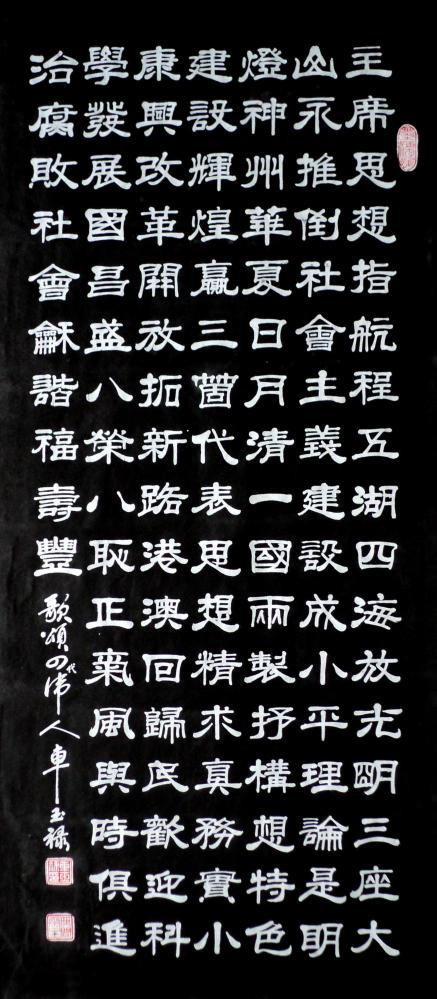 主席思想指航程五湖四海放光明三座大
山永推倒社會主義建設成小平理論是明
燈神州華夏日月清一國兩製抒構想特色
建設輝煌贏三箇代表思想精求真務實小
康興改革開放拓新路港澳回歸民歡迎科
學發展國昌盛八榮八恥正氣風與時俱進
治腐敗社會龢諧福壽豐
歌頌四代偉人車玉祿